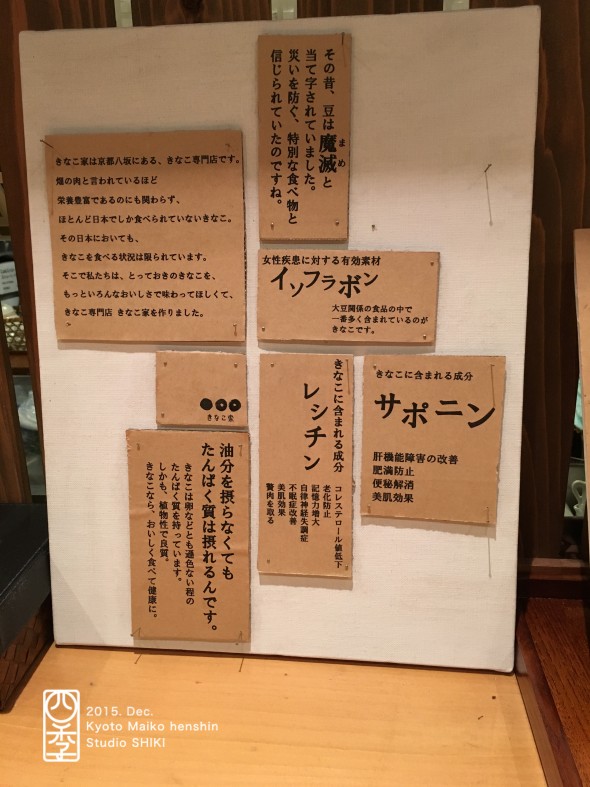 その昔、豆は魔滅と
まめ
当て字されていました。
災いを防ぐ、特別な食べ物と
信じられていたのですね。
きなこ家は京都八坂にある、きなこ専門店です。
畑の肉と言われているほど
栄養豊富であるのにも関わらず、
ほとんど日本でしか食べられていないきなこ。
その日本においても、
きなこを食べる状況は限られています。
そこで私たちは、とっておきのきなこを、
もっといろんなおいしさで味わってほしくて、
きなこ専門店 きなこ家を作りました。
女性疾患に対する有効素材
イソフラボン
大豆関係の食品の中で
一番多く含まれているのが
きなこです。
きなこ家
きなこに含まれる成分
レシチン
コレステロール値低下
老化防止
記憶力増大
自律神経失調症
不眠症改善
美肌効果
贅肉を取る
きなこに含まれる成分
サポニン
肝機能障害の改善
肥満防止
便秘解消
美肌効果
油分を摂らなくても
たんぱく質は摂れるんです。
きなこは卵などとも遜色ない程の
たんぱく質を持っています。
しかも、植物性で良質。
きなこなら、おいしく食べて健康に。
四季
2015. Dec.
Kyoto Maiko henshin
Studio SHIKI